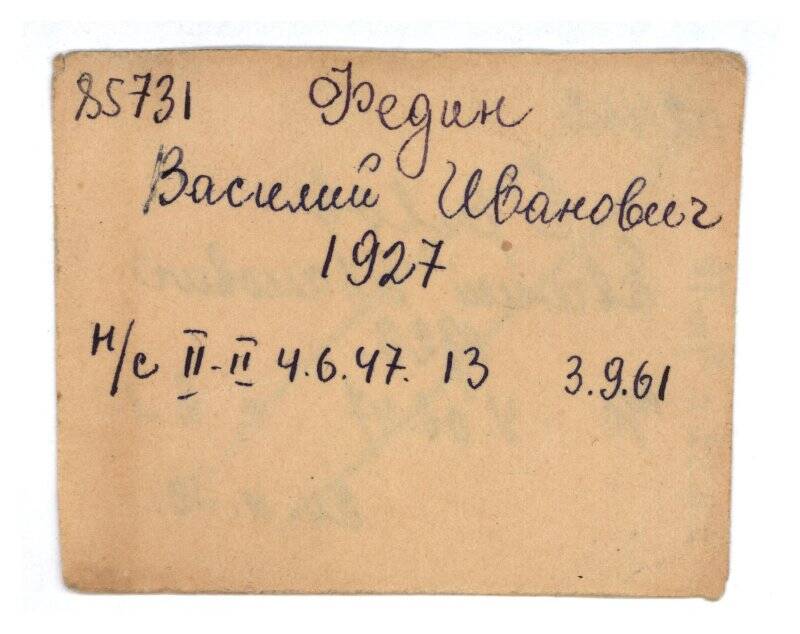 85731 Федин
Василий Иванович
1927
н/с II-II 4.6.47. 13 3.9.61